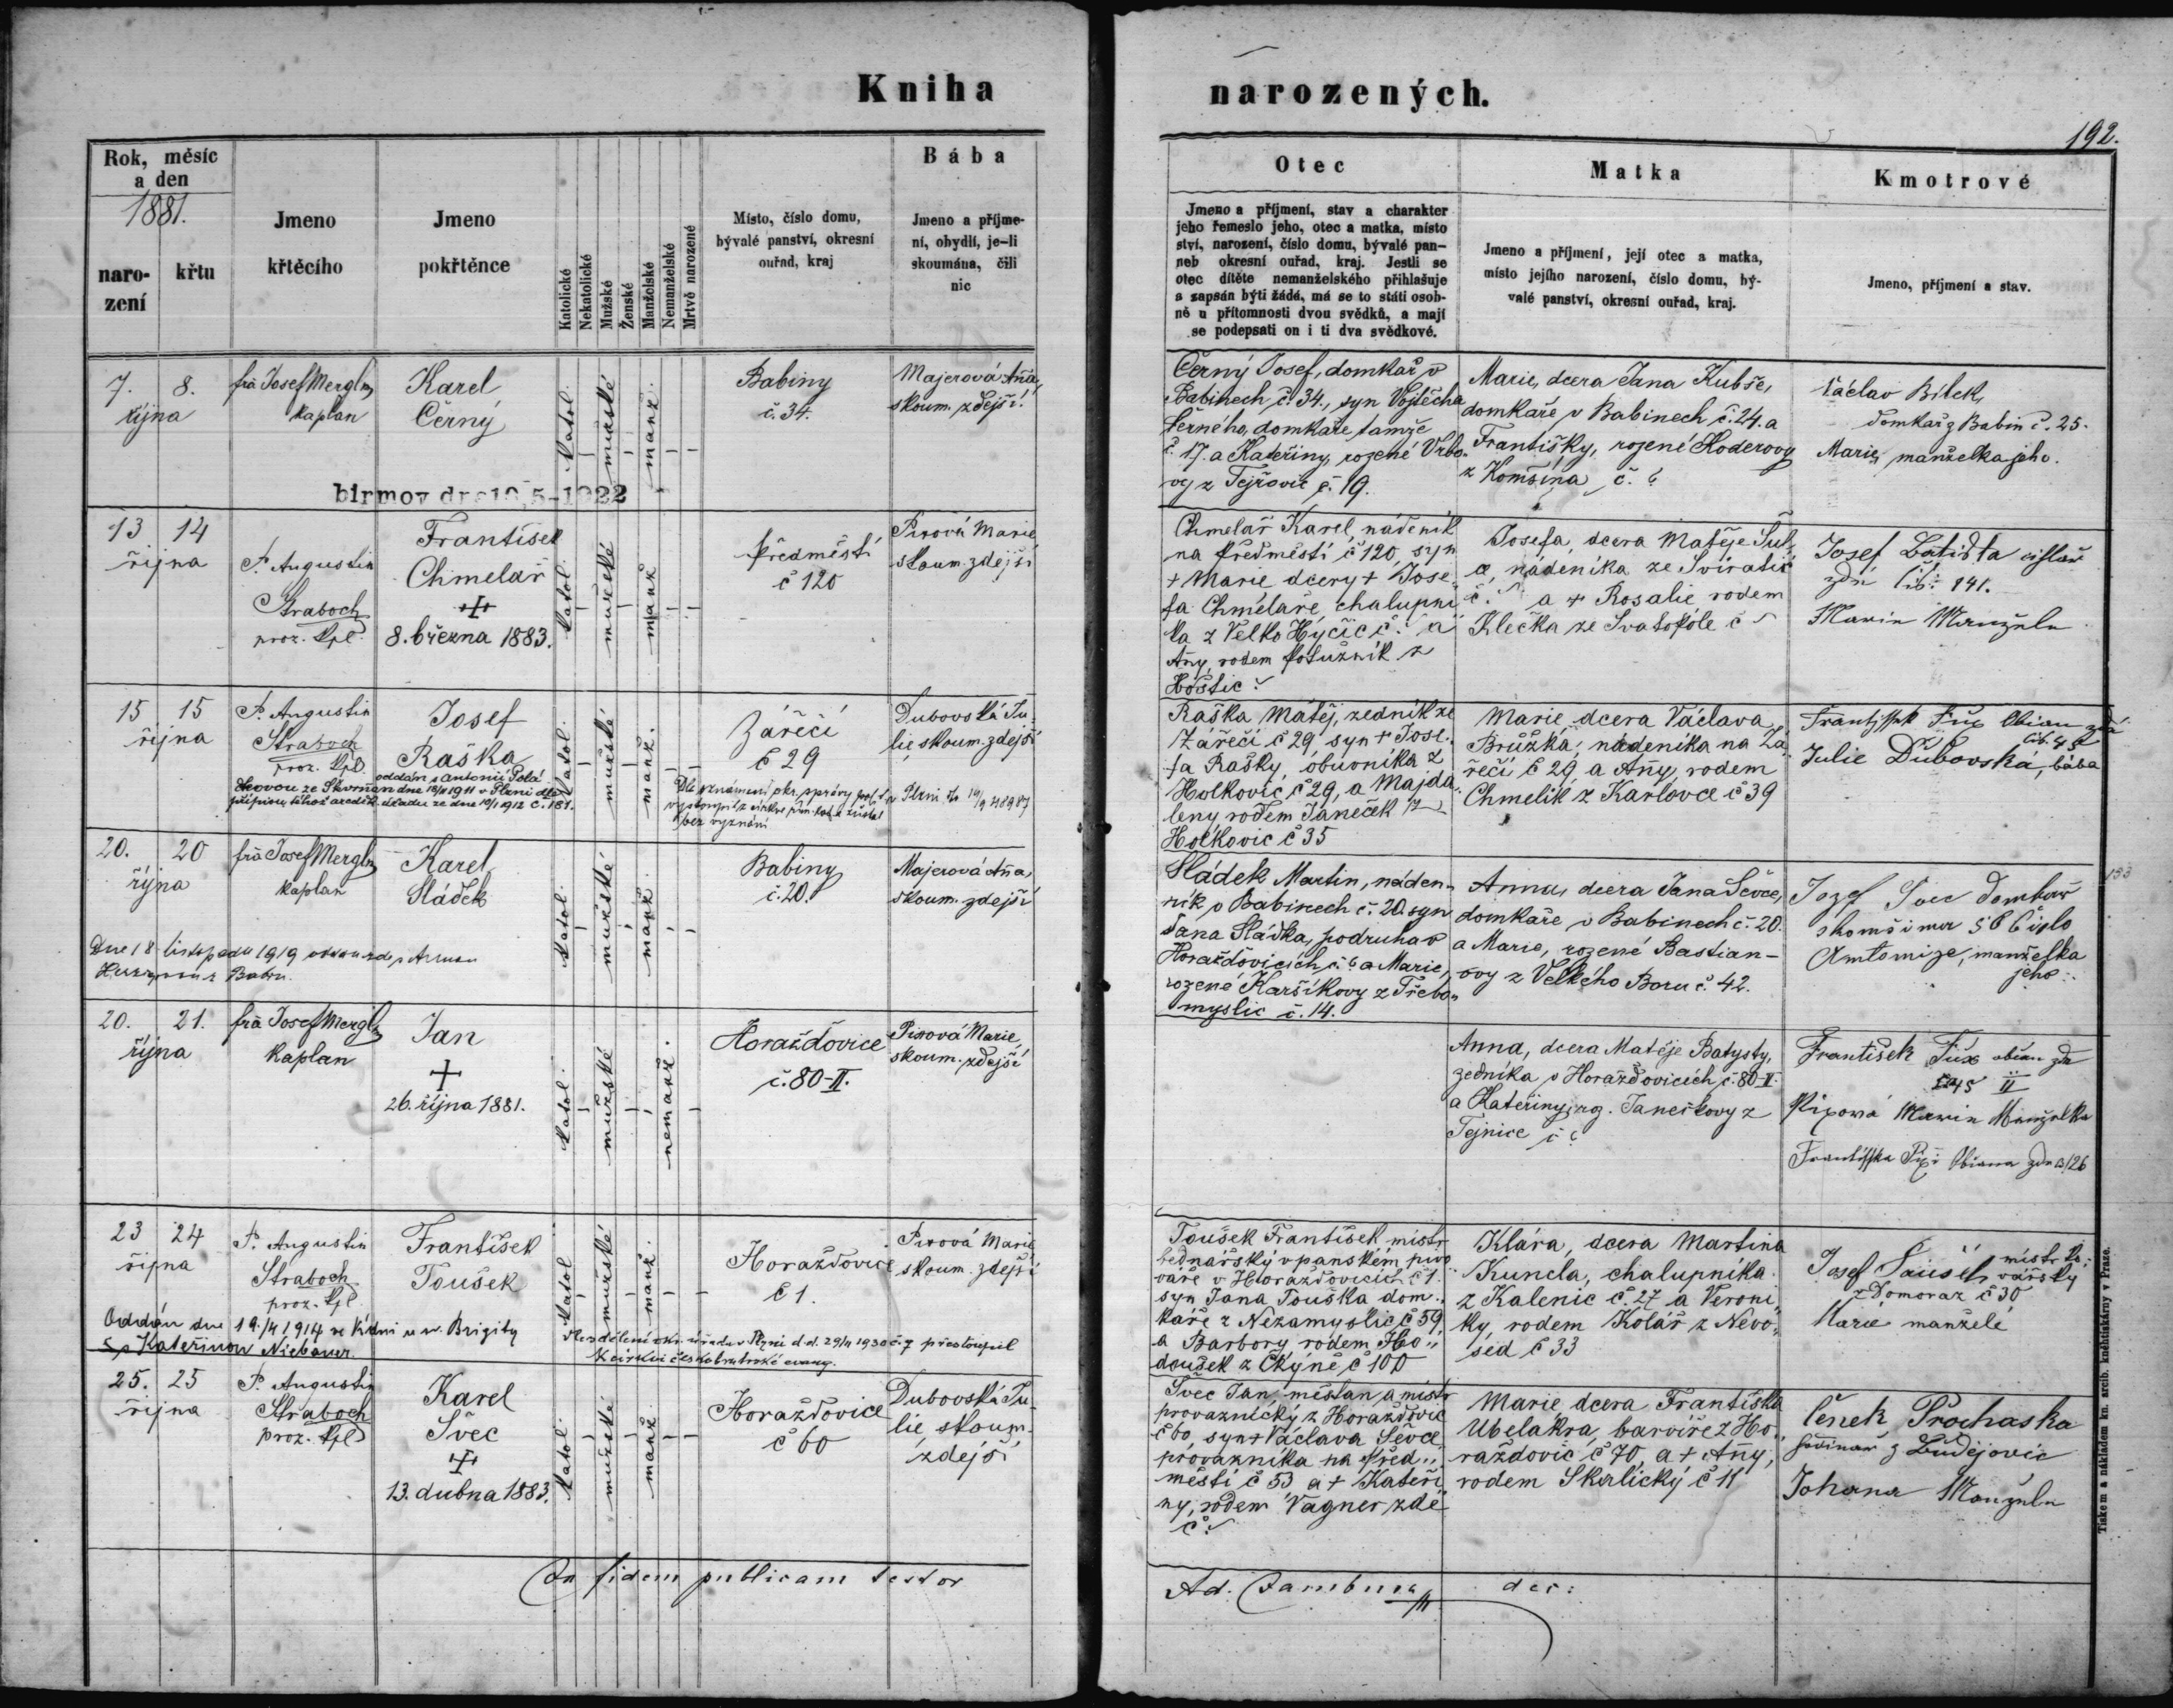 Kniha
narozených.
192.
Rok, měsíc
a den
1881.
naro-
zení
křtu
Jmeno
křtěcího
Jmeno
pokřtěnce
Katolické
Nekatolické
Mužské
Ženské
Manželské
Nemanželské
Mrtvě narozené
Místo, číslo domu,
bývalé panství, okresní
ouřad, kraj
Bába
Jmeno a příjme-
ní, obydlí, je-li
skoumána, čili
nic
Otec
Jmeno a příjmení, stav a charakter
jeho řemeslo jeho, otec a matka, místo
ství, narození, číslo domu, bývalé pan-
neb okresní ouřad, kraj. Jestli se
otec dítěte nemanželského přihlašuje
a zapsán býti žádá, má se to státi osob-
ně u přítomnosti dvou svědků, a mají
se podepsati on i ti dva svědkové.
Matka
Jmeno a příjmení, její otec a matka,
místo jejího narození, číslo domu, bý-
valé panství, okresní ouřad, kraj.
Kmotrové
Jmeno, příjmení a stav.
7. 8.
října
frà Josef Mergl
kaplan
Karel
Černý
katol.
mužské
manž.
Babiny
č. 34.
Majerová Aña,
skoum. zdejší
birmov dne 10/5-1922
Černý Josef, domkař v
Babinech č. 34., syn Vojtěcha
Černého, domkaře tamže
č. 17. a Kateřiny, rozené Vrbo-
vy z Tejřovic č. 19.
Marie, dcera Jana Kubše,
domkaře v Babinech č. 24. a
Františky, rozené Koderovy
z Komšína č. ?
Václav Bílek,
domkař z Babin č. 25.
Marie, manželka jeho.
13 14
října
P. Augustin
Straboch
proz. kpl.
František
Chmelař
8. března 1883.
katol.
mužské
manž
Předměstí
č 120
Pixová Marie
skoum. zdejší
Chmelař Karel, nádeník
na Předměstí č 120, syn
+ Marie dcery + Jose-
fa Chmelaře, chalupní
ka z Velko Hyčic č. ? a
Añy, rodem Potužník z
Hoštic ?
Josefa, dcera Matěje
nádeníka ze Sviratic
č. ? a + Rosalie rodem
Klečka ze Svatopole č ?
Josef Batista
zdn čís: 141.
Marie
15 15
října
P. Augustin
Straboch
proz. kpl.
Josef
Raška
oddán s Antonií Polá
dne 18/11 1911 v Plzni dle
ze dne 10/1 1912 č. 181.
katol.
mužské
manž.
Zářečí
č 29
Dubovská Ju-
lie skoum. zdejší
Dle oznámení okr. správy pol. v Plzni
vystoupil z církve řím. kat. a zůstal
bez vyznání
Raška Matěj, zedník ze
Zářečí č 29 syn + Jose-
fa Rašky, obuvníka z
Holkovic č 29, a Majda-
leny, rodem Janeček z
Holkovic č 35
Marie, dcera Václava
Brůžka, nádeníka na Zá-
řečí č 29, a Añy, rodem
Chmelík z Karlovce č 39
Frantissek Fux
čís. 45
Julie Dubovská, bába
20. 20
října
frà Josef Mergl
kaplan
Karel
Sládek
Dne 18 listopadu 1919
katol.
mužské
manž.
Babiny
č. 20.
Majerová Aña,
skoum. zdejší
Sládek Martin, náden-
ník v Babinech č. 20. syn
Jana Sládka, podruha v
Horažďovicích č. ? a Marie,
rozené Karšíkovy z Třebo-
myslic č. 14.
Anna, dcera Jana Ševce,
domkaře v Babinech č. 20.
a Marie, rozené Bastian-
ovy z Velkého Boru č. 42.
Jozef Svec Domkař
Antonie, manželka
jeho.
20. 21.
října
frà Josef Mergl
kaplan
Jan
26. října 1881.
katol.
mužské
nemanž.
Horažďovice
č. 80-II.
Pixová Marie,
skoum. zdejší
Anna, dcera Matěje Batysty,
zedníka v Horažďovicích č. 80-II.
a Kateřiny, roz. Janečkovy z
Tejnice č ?
František Fux
45 II
Pixowá Marie Manželka
Františka
126
23 24
října
P. Augustin
Straboch
proz. kpl
František
Toušek
Oddán dne 19./4 1914 ve Vídni u sv. Brigity
s Kateřinou Niebauer
katol
mužské
manž.
Horažďovice
č 1.
Pixová Marie
skoum. zdejší
přestoupil
k církvi českobratrské evang.
Toušek František mistr
bednářský v panském pivo
váře v Horažďovicích č 1.
syn Jana Touška dom-
káře z Nezamyslic č 59
a Barbory, rodem Ho-
doušek z Čkýně č 100
Klára, dcera Martina
Kuncla, chalupníka
z Kalenic č. 27 a Veroni-
ky, rodem Kolář z Nevo-
sed č 33
Josef
z Domoraz č 30
Marie manželé
25. 25
října
P. Augustin
Straboch
proz. kpl
Karel
Švec
13. dubna 1883.
katol.
mužské
manž.
Horažďovice
č 60
Dubovská Ju-
lie, skoum.
zdejší
Švec Jan, měšťan a mistr
provaznický z Horažďovic
č 60, syn + Václava Ševce,
provazníka na Před-
městí č 53 a + Kateři
ny, rodem Vagner zde
č ?
Marie, dcera Františka
Ubelakra, barvíře z Ho-
ražďovic č 70, a + Añy,
rodem Skalický č 11
Čenek Prochaska
z Budějovic
Johana
In fidem publicam testor
Ad. Jambura dec:
Tiskem a nákladem kn. arcib. kněhtiskárny v Praze.